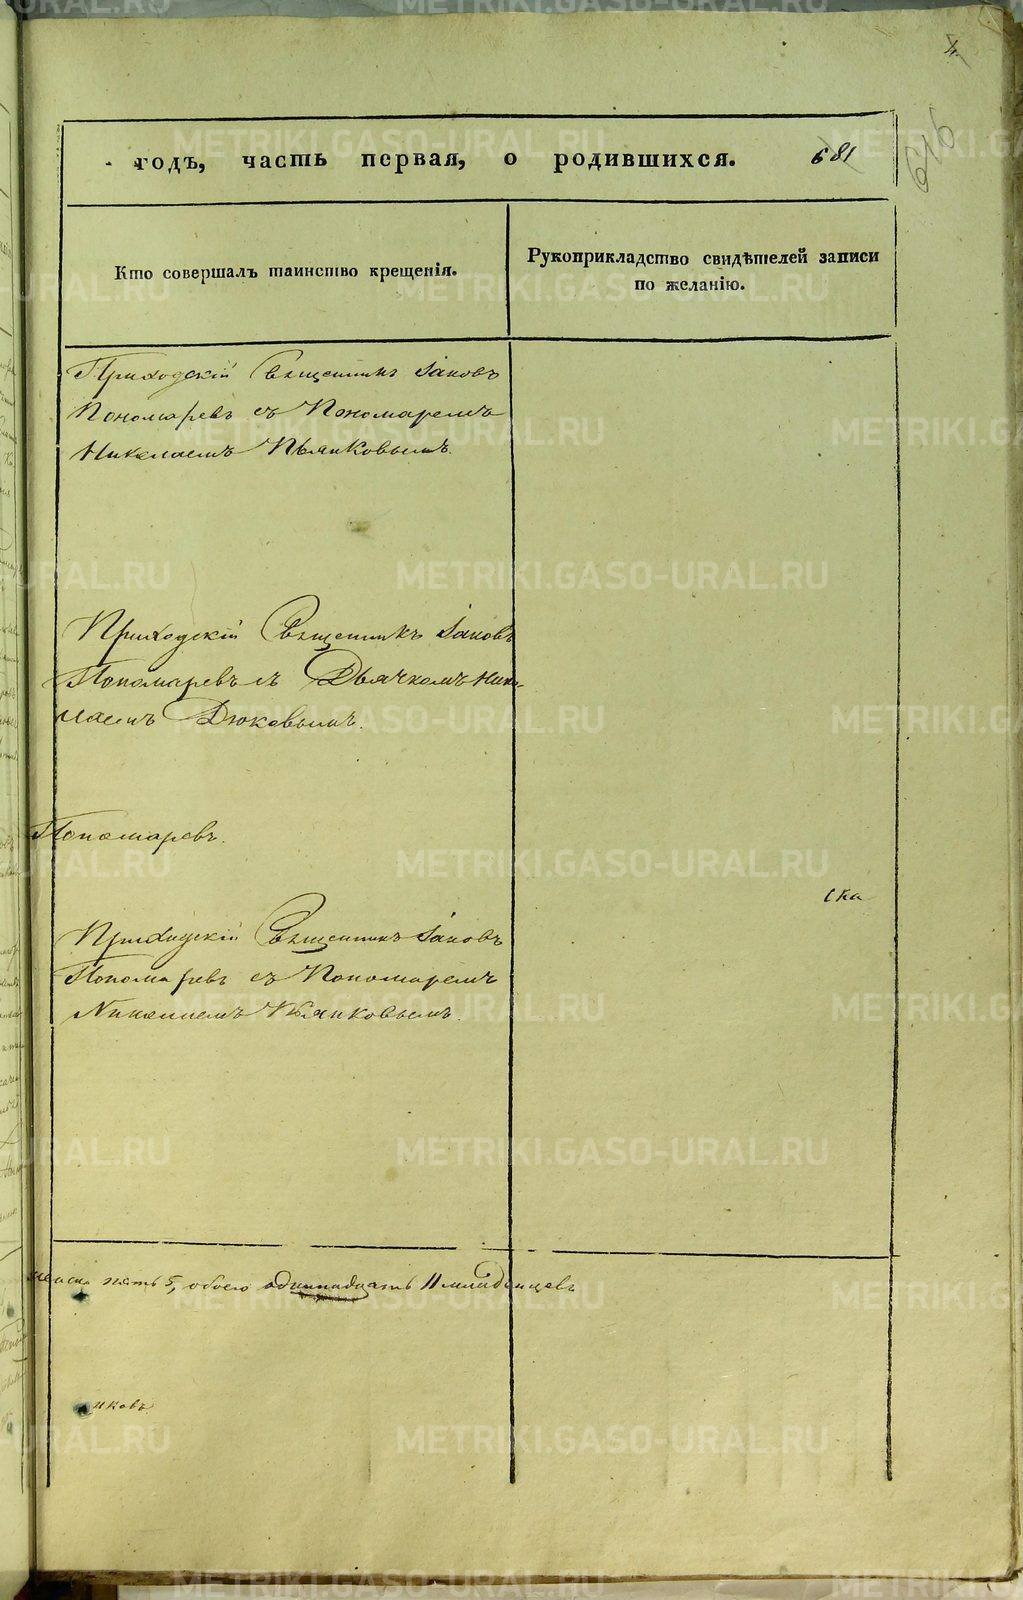 годъ, часть первая, о родившихся. 681
616
Кто совершалъ таинство крещенія.
Рукоприкладство свидѣтелей записи
по желанію.
Приходскій Священникъ Іаковъ
Пономаревъ съ Пономаремъ
Николаемъ Пьянковымъ.
Приходскій Священникъ Іаковъ
Пономаревъ съ Дьячкомъ Нико-
лаемъ Дюковымъ.
Пономаревъ.
ска
Приходскій Священникъ Іаковъ
Пономаревъ съ Пономаремъ
Николаемъ Пьянковымъ.
пять 5, обоего одиннадцать 11 младенцевъ
нковъ.
METRIKI.GASO-URAL.RU